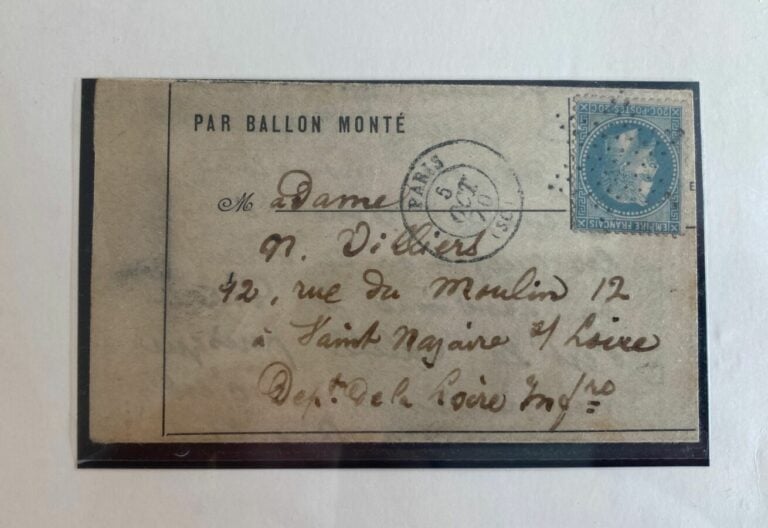 PAR BALLON MONTÉ
PARIS
5
OCT
70
(SC)
20C POSTES 20C
EMPIRE FRANÇAIS
Madame
N. Villiers
12, rue du Moulin 12
à Saint Nazaire s/ Loire
Dept. de la Loire Infre
E